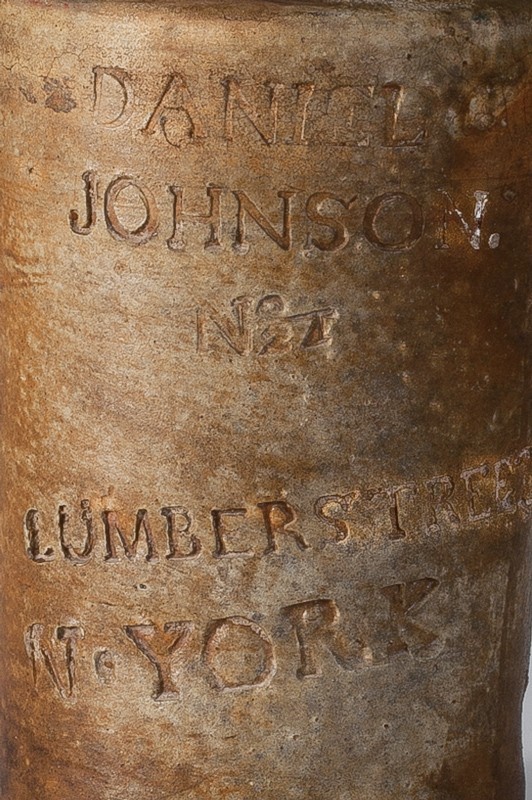 DANIEL
JOHNSON.
Nº 24
LUMBER STREET
N. YORK